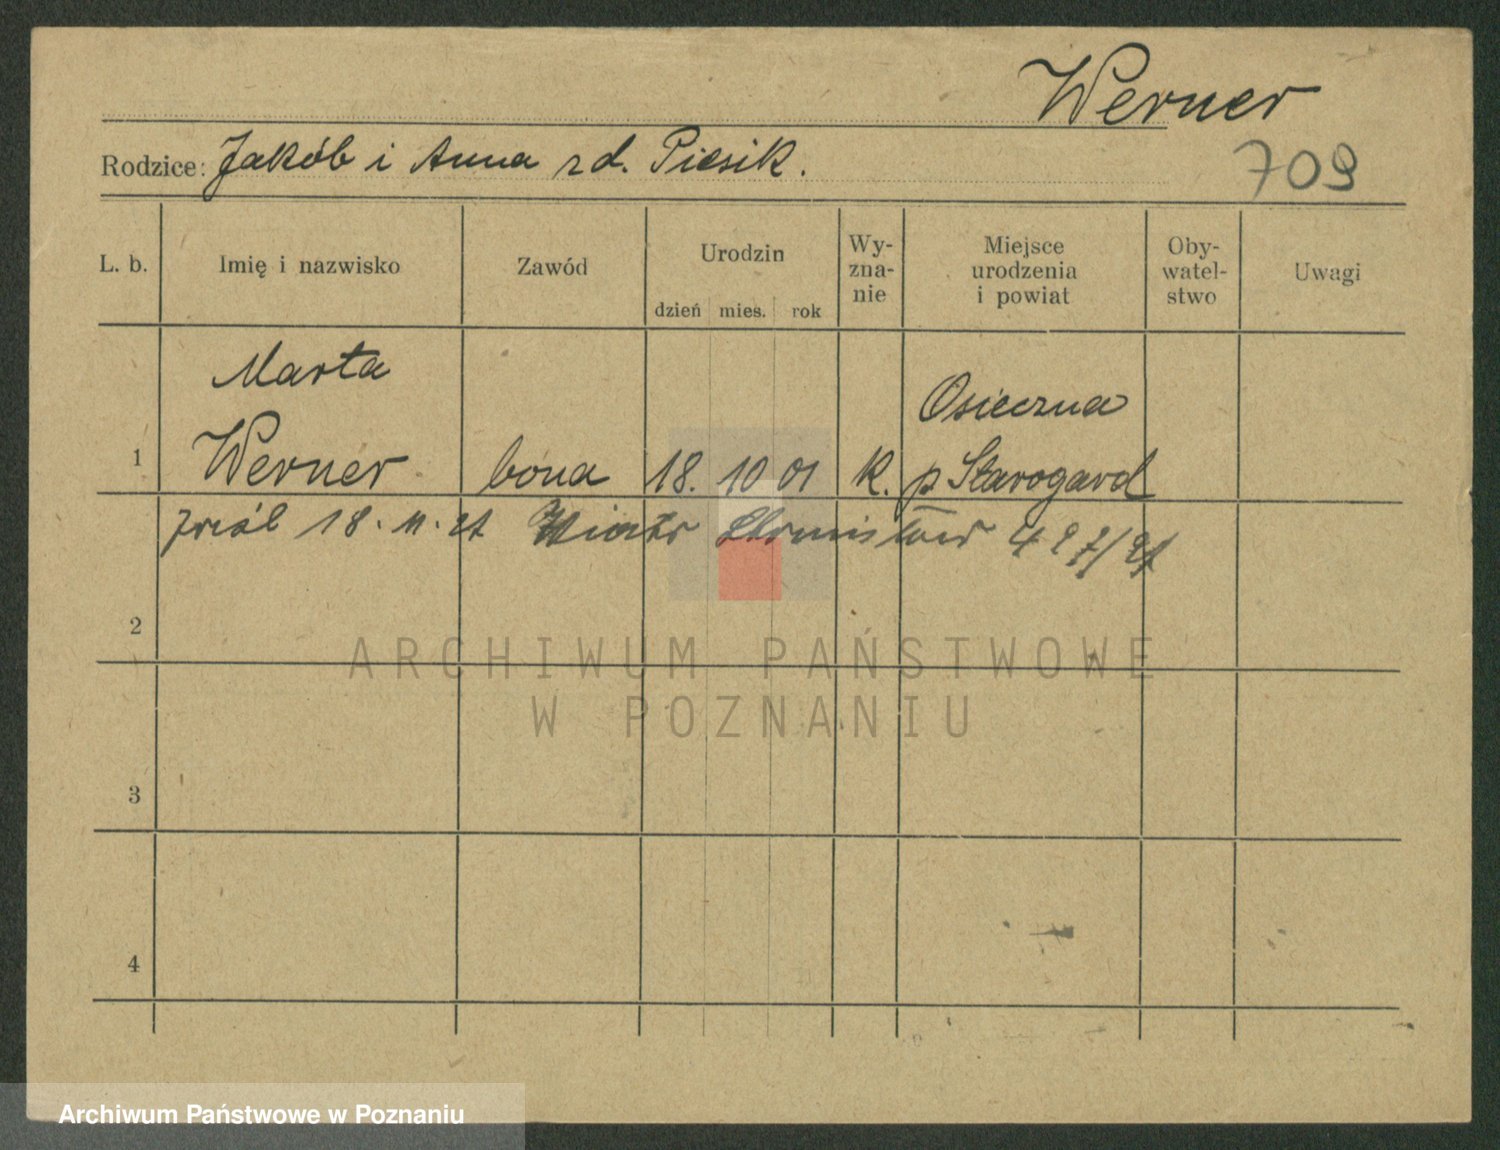 Werner
Rodzice: Jakób i Anna zd. Piesik.
709
L. b. Imię i nazwisko Zawód Urodzin dzień mies. rok Wy-zna-nie Miejsce urodzenia i powiat Oby-watel-stwo Uwagi
Marta Osieczna
1 Werner bona 18. 10 01 k. p Starogard
18. 11. 21
2
ARCHIWUM PAŃSTWOWE
W POZNANIU
3
4
Archiwum Państwowe w Poznaniu